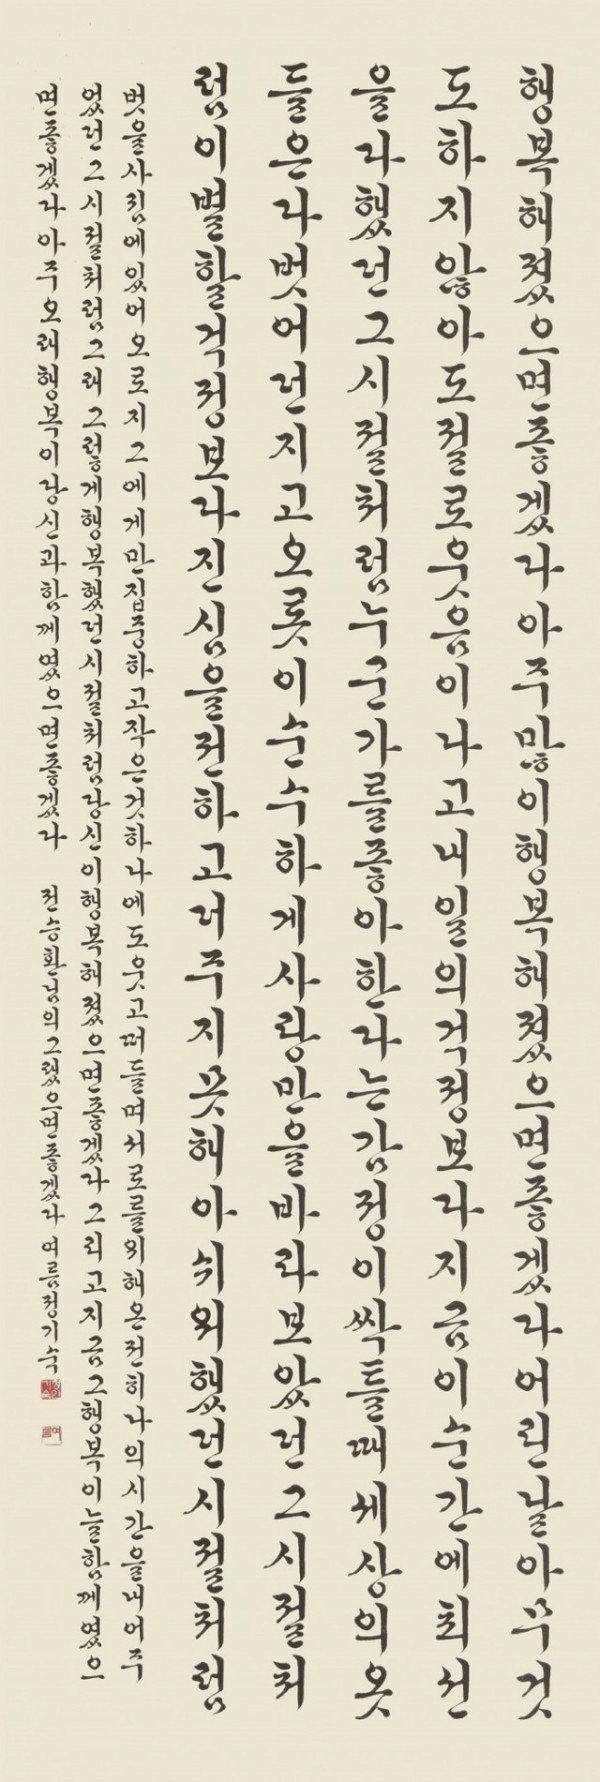 행복해졌으면좋겠다아주많이행복해졌으면좋겠다어린날아무것
도하지않아도절로웃음이나고내일의걱정보다지금이순간에최선
을다했던그시절처럼누군가를좋아한다는감정이싹틀때세상의옷
들은다벗어던지고오롯이순수하게사랑만을바라보았던그시절처
럼이별할걱정보다진심을전하고더주지못해아쉬워했던시절처럼
벗을사귐에있어오로지그에게만집중하고작은것하나에도웃고떠들며서로를위해온전히나의시간을내어주
었던그시절처럼그래그렇게행복했던시절처럼당신이행복해졌으면좋겠다그리고지금그행복이늘함께였으
면좋겠다아주오래행복이당신과함께였으면좋겠다 전승환님의그랬으면좋겠다 여름정기숙